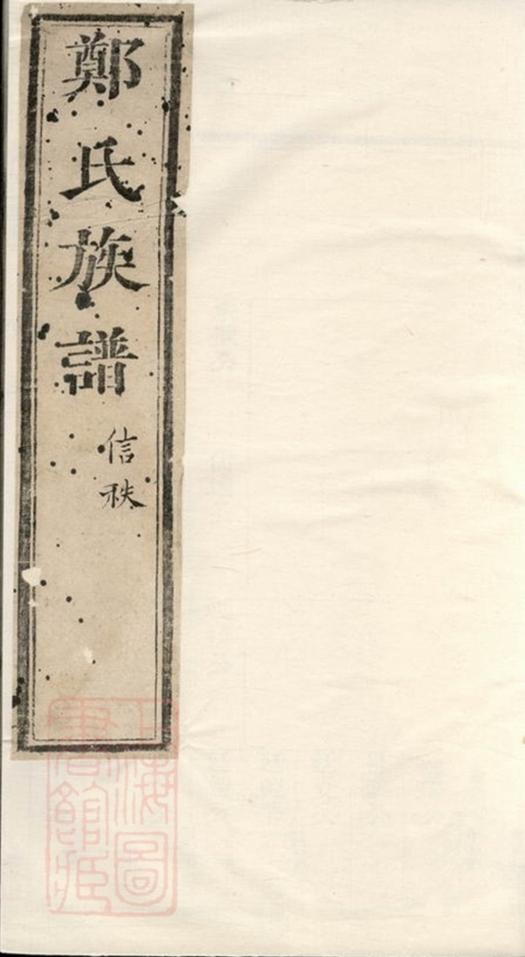 鄭氏族譜
信秩
上海圖
書館藏